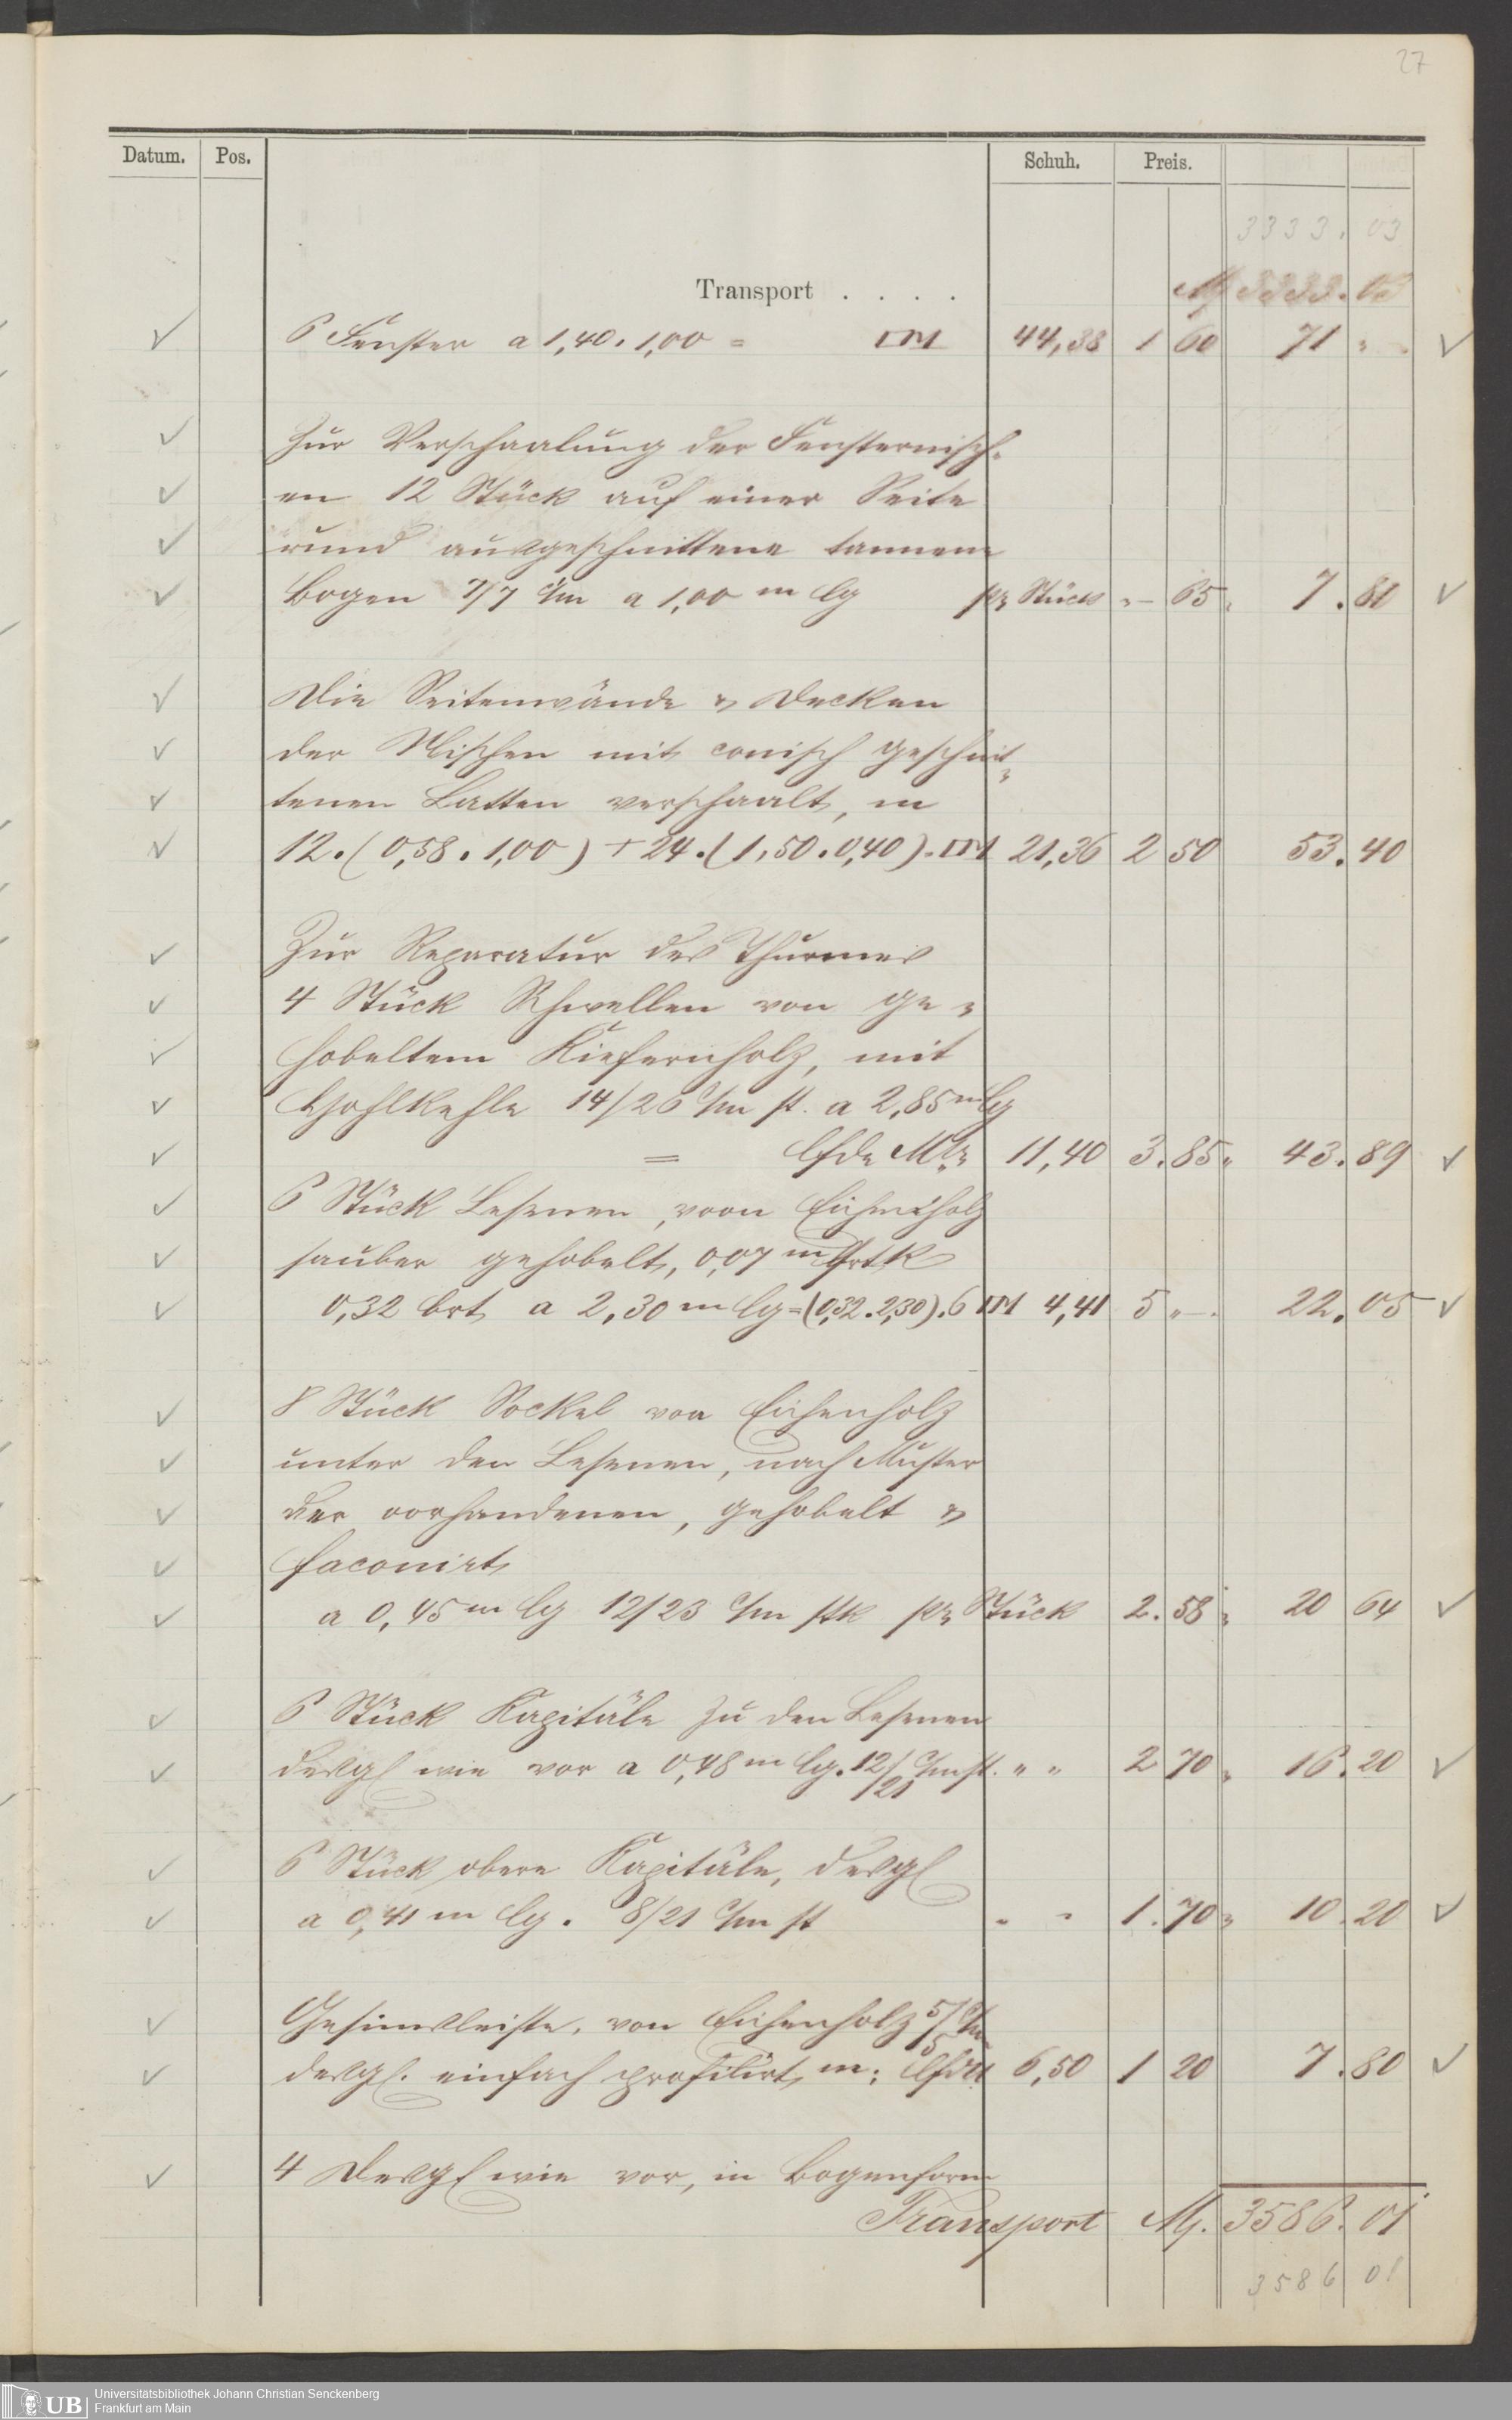 27
Datum. Pos. Schuh. Preis.
3333. 03
Transport . . . . M 3333. 03
6 Fenster a 1,40. 1,00 = □M 44,38 1 60 71 "
Zur Verschaalung der Fensternisch-
en 12 Stück auf einer Seite
rund ausgeschnittene tannene
Bogen 7/7 c/m a 1,00 m lg pr Stück " — 65 " 7. 80
Die Seitenwände & Decken
der Nischen mit conisch geschnit-
tenen Latten verschaalt, m
12. (0,58. 1,00) + 24. (1,50. 0,40). □M 21,36 2 50 53. 40
Zur Reparatur des Thurmes
4 Stück Schwellen von ge-
hobeltem Kiefernholz, mit
Hohlkehle 14/26 c/m st. a 2,85 m lg
= lfde Mtr 11,40 3. 85 " 43. 89
6 Stück Lesenen, von Eichenholz
sauber gehobelt, 0,07 m stk
0,32 brt a 2,30 m lg = (0,32. 2,30). 6 □M 4,41 5 " —. 22. 05
8 Stück Sockel von Eichenholz
unter den Lesenen, nach Muster
der vorhandenen, gehobelt &
faconirt
a 0,45 m lg 12/23 c/m stk pr Stück 2. 58 " 20 64
6 Stück Kapitäle zu den Lesenen
desgl wie vor a 0,48 m lg. 12/21 c/m st. " " 2 70 " 16. 20
6 Stück obere Kapitäle, desgl
a 0,41 m lg. 8/21 c/m st " " 1. 70 " 10. 20
Gesimsleiste, von Eichenholz 5/5 c/m
desgl. einfach profilirt, m: lfde 6,50 1 20 7. 80
4 Desgl wie vor, in Bogenform
Transport M. 3586. 01
3586 01
UB Universitätsbibliothek Johann Christian Senckenberg
Frankfurt am Main